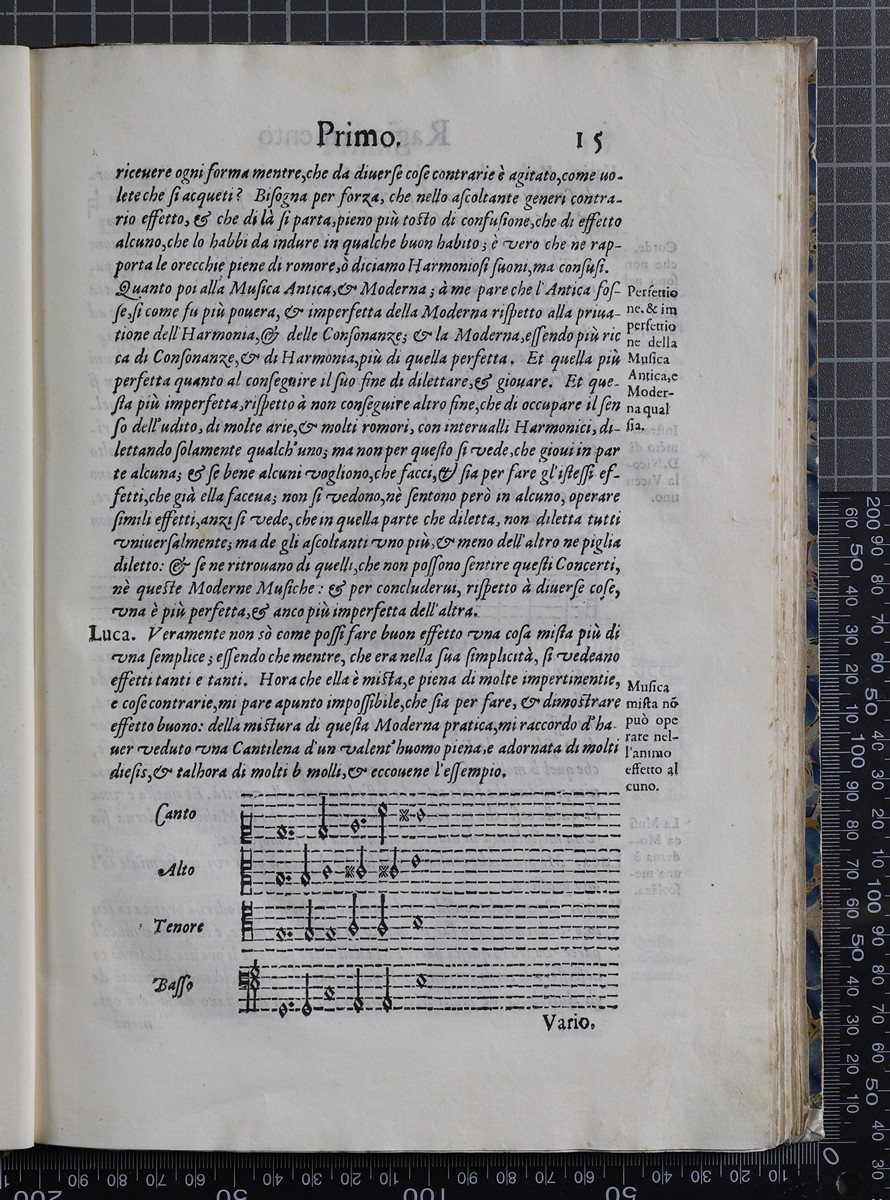 Primo. 15
riceuere ogni forma mentre,che da diuerſe coſe contrarie è agitato,come uo-
lete che ſi acqueti? Biſogna per forza, che nello aſcoltante generi contra-
rio effetto, & che di là ſi parta,pieno più toſto di confuſione,che di effetto
alcuno,che lo habbi da indure in qualche buon habito; è vero che ne rap-
porta le orecchie piene di romore,ò diciamo Harmonioſi ſuoni,ma confuſi.
Quanto poi alla Muſica Antica,& Moderna; à me pare che l'Antica foſ-
ſe,ſi come fu più pouera, & imperfetta della Moderna riſpetto alla priua-
tione dell'Harmonia,& delle Conſonanze; & la Moderna,eſſendo più ric
ca di Conſonanze,& di Harmonia,più di quella perfetta. Et quella più
perfetta quanto al conſeguire il ſuo fine di dilettare,& giouare. Et que-
ſta più imperfetta,riſpetto à non conſeguire altro fine,che di occupare il ſen
ſo dell'udito,di molte arie,& molti romori, con interualli Harmonici, di-
lettando ſolamente qualch'uno; ma non per queſto ſi vede,che gioui in par
te alcuna; & ſe bene alcuni vogliono,che facci,& ſia per fare gl'iſteſſi ef-
fetti,che già ella faceua; non ſi vedono,nè ſentono però in alcuno, operare
ſimili effetti,anzi ſi vede, che in quella parte che diletta, non diletta tutti
vniuerſalmente; ma de gli aſcoltanti vno più,& meno dell'altro ne piglia
diletto: & ſe ne ritrouano di quelli,che non poſſono ſentire queſti Concerti,
nè queſte Moderne Muſiche: & per concluderui, riſpetto à diuerſe coſe,
vna è più perfetta,& anco più imperfetta dell'altra.
Perfettio
ne, & im
perfettio
ne della
Muſica
Antica,e
Moder-
na qual
ſia.
Luca. Veramente non sò come poſſi fare buon effetto vna coſa miſta più di
vna ſemplice; eſſendo che mentre, che era nella ſua ſimplicità, ſi vedeano
effetti tanti e tanti. Hora che ella è miſta,e piena di molte impertinentie,
e coſe contrarie,mi pare apunto impoſſibile,che ſia per fare, & dimoſtrare
effetto buono: della miſtura di queſta Moderna pratica,mi raccordo d'ha-
uer veduto vna Cantilena d'un valent'huomo piena,e adornata di molti
dieſis,& talhora di molti b molli,& eccouene l'eſſempio.
Muſica
miſta nõ
può ope
rare nel-
l'animo
effetto al
cuno.
Canto
Alto
Tenore
Baſſo
Vario.